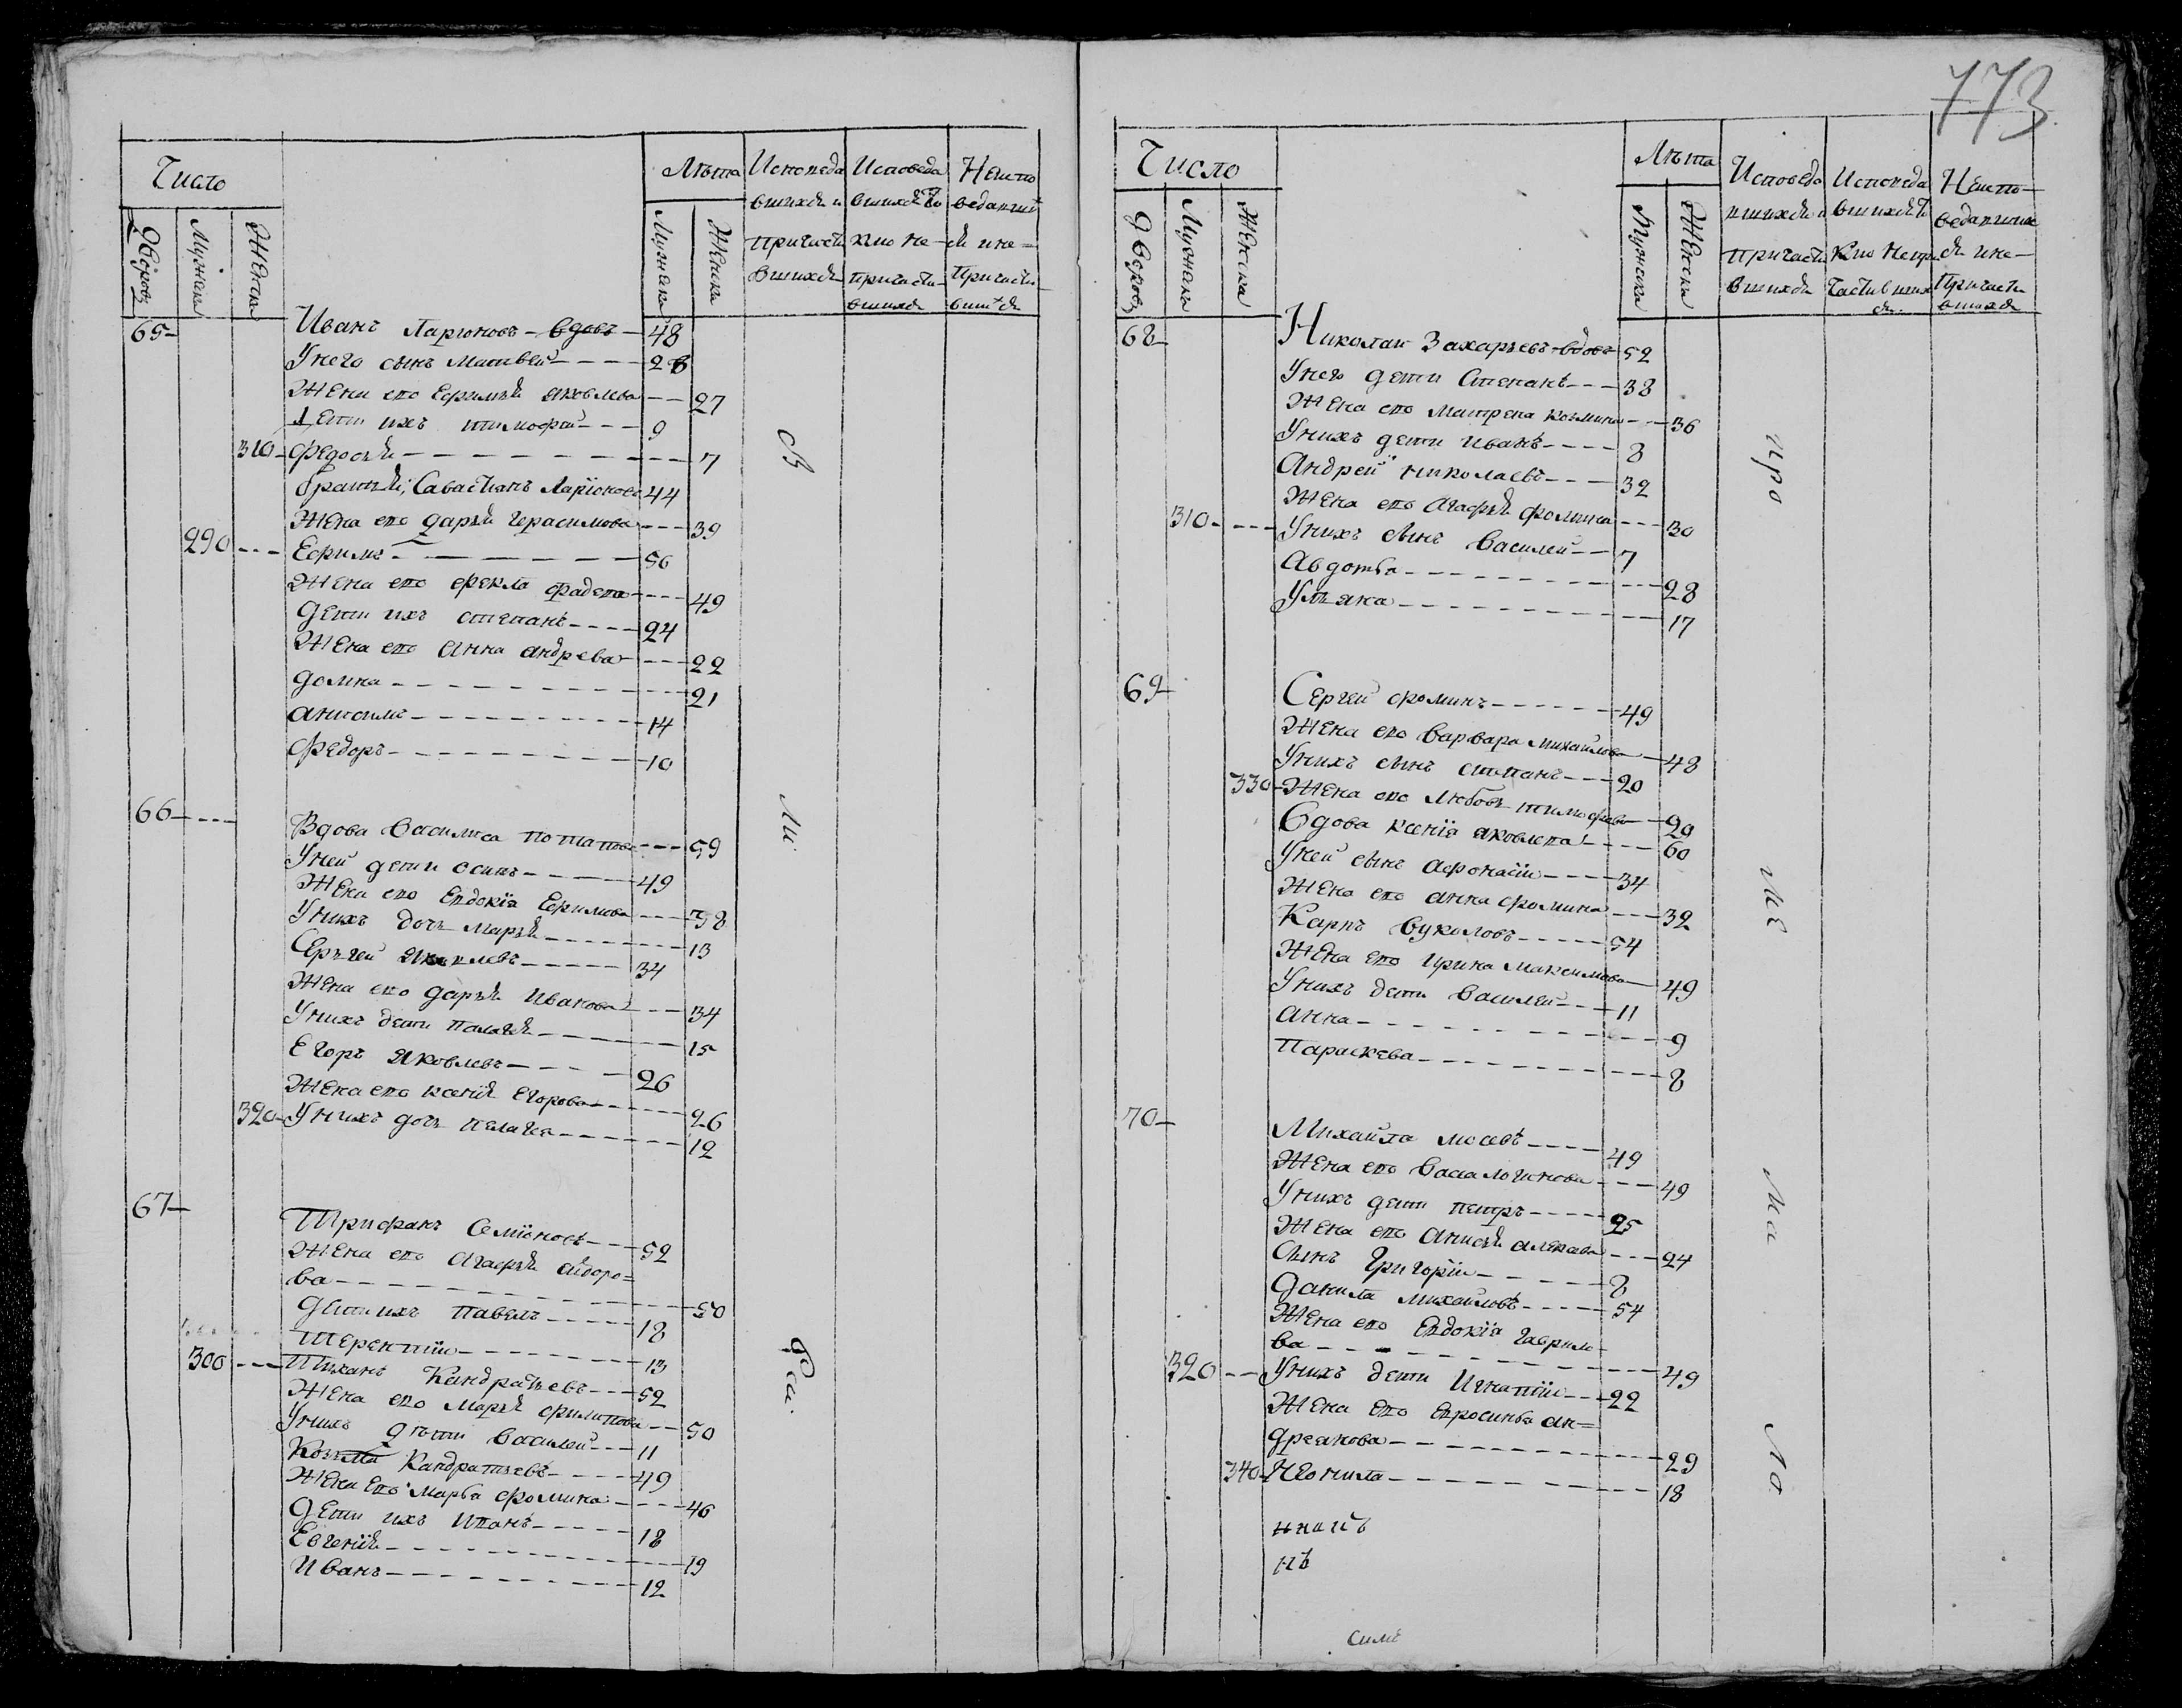 773
Число
Лѣта
Исповеда
вшихся и
причасти
вшихся
Исповеда
вшихся то
кмо не
причасти
вшихся
Неиспо
ведавши
ся и не
причасти
вшихся
Дворовъ
Мужеска
Женска
Мужеска
Женска
65 Иванъ Ларионовъ вдовъ 48
У него сынъ Матвей 28
Жена его Ефимья Яковлева 27
Дети ихъ Тимофей 9
310 Федосья 7
Братья; Савастьянъ Ларïоновъ 44
Жена его Дарья Герасимова 39
290 Ефимъ 56
Жена его Фекла Фадеева 49
Дети ихъ Степанъ 24
Жена его Анна Андрева 22
Домна 21
Анисимъ 14
Федоръ 10
66 Вдова Василиса Потапова 59
У ней дети Осипъ 49
Жена его Евдокïя Ефимова 38
У нихъ дочь Марья 13
Серьгей Яковлевъ 34
Жена его Дарья Иванова 34
У нихъ дети Палагея 15
Егоръ Яковлевъ 26
Жена его Ксенïя Егорова 26
320 У нихъ дочь Пелагея 12
67 Трифанъ Семïоновъ 52
Жена его Агафья Сидоро=
ва 50
Дети ихъ Павелъ 18
Терентïи 13
300 Тиханъ Кандратьевъ 52
Жена его Марья Филипова 50
У нихъ дѣти Василей 11
Козьма Кандратьевъ 49
Жена его Марфа Фомина 46
Дети ихъ Иванъ 18
Евгенïя 19
Иванъ 12
св
Ли
Число
Лѣта
Исповеда
вшихся и
причасти
вшихся
Исповеда
вшихся то
кмо непри
частивших
ся
Неиспо
ведавших
ся и не
причасти
вшихся
Дворовъ
Мужеска
Женска
Мужеска
Женска
68 Николаи Захарьевъ вдовъ 52
У него дети Степанъ 38
Жена его Матрена Козмина 36
У нихъ дети Иванъ 8
Андрей Николаевъ 32
Жена его Агафья Фомина 30
310 У нихъ сынъ Василей 7
Авдотья 28
Ульяна 17
69 Сергеи Фоминъ 49
Жена его Варвара Михайлова 48
У нихъ сынъ Степанъ 20
330 Жена его Любовь Тимофеева 20
Вдова Ксенïя Яковлева 60
У ней сынъ Афонасïи 34
Жена его Анна Фомина 32
Карпъ Вуколовъ 54
Жена его Ирина Максимова 49
У нихъ дети Василеи 11
Анна 9
Параскева 8
70 Михайла Мосевъ 49
Жена его Васса Логинова 49
У нихъ дети Петръ 25
Жена его Анисья Алексева 24
Сынъ Григорïи 8
Данила Михаиловъ 54
Жена его Евдокïя Гаврило
ва 49
320 У нихъ дети Игнатïи 22
Жена его Евросинья Ан=
дреянова 29
340 Неонила 18
про
Ме
Ма
ло